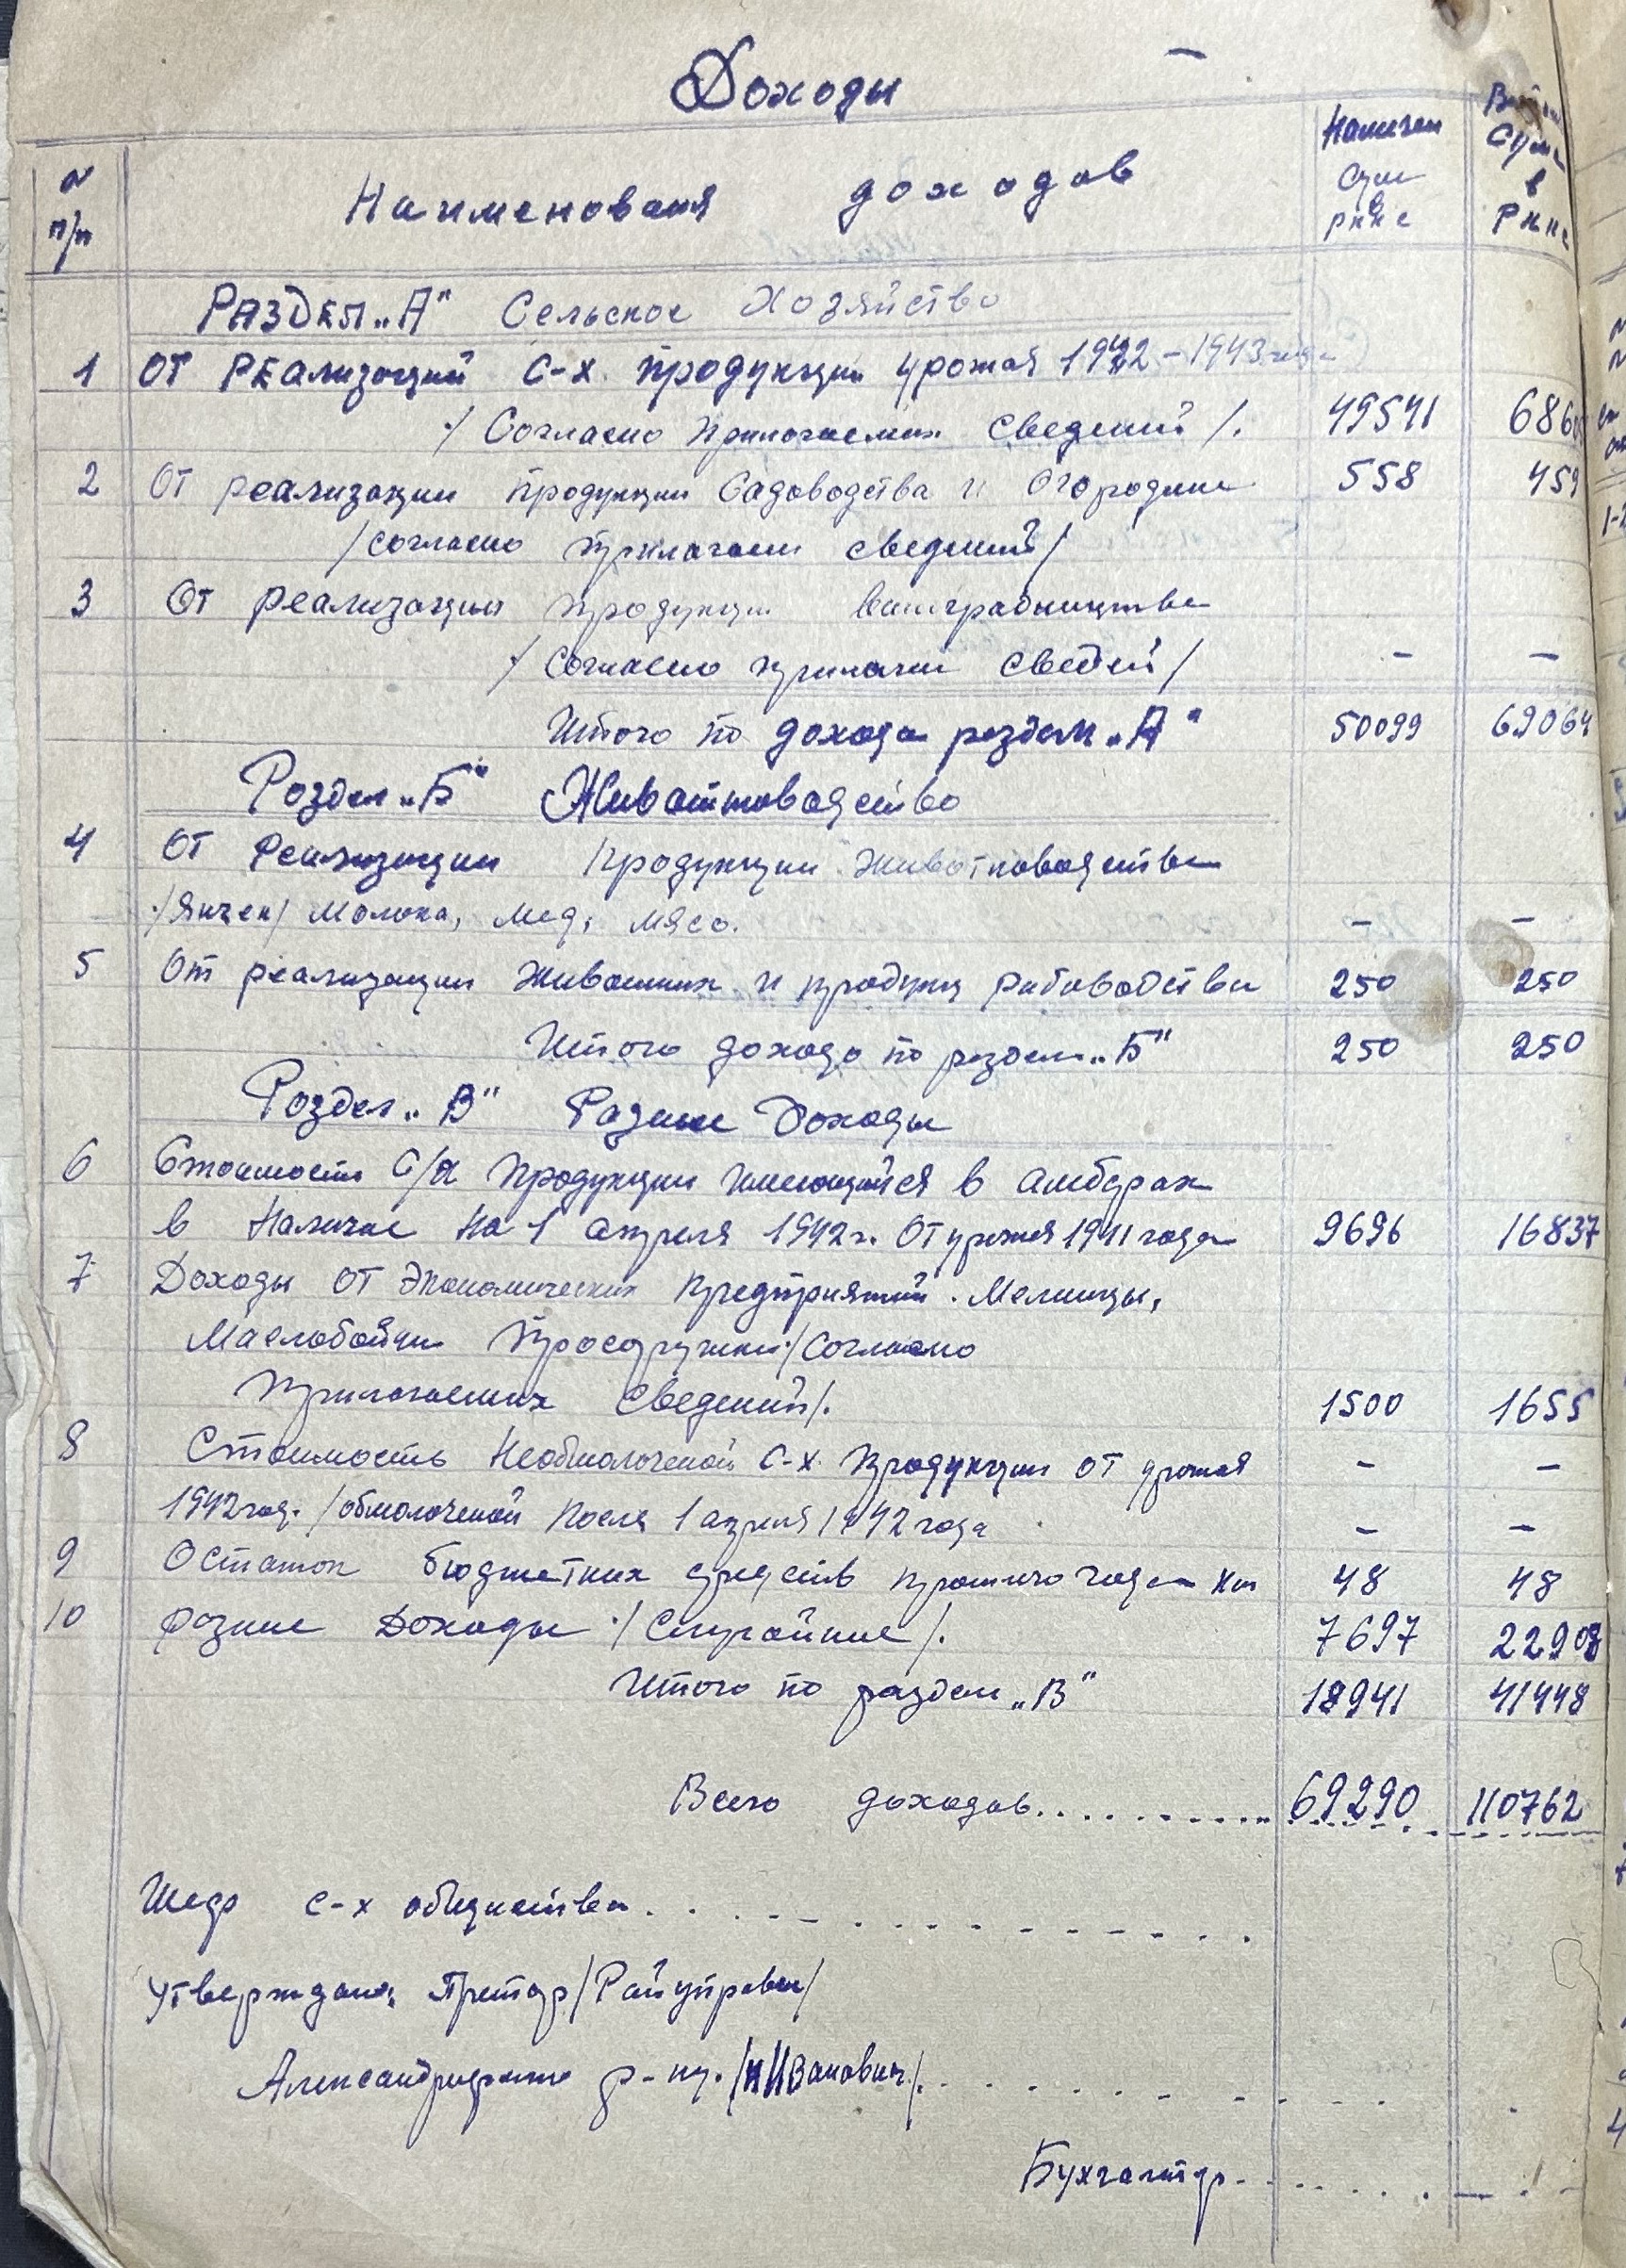 Доходы
№ п/п
Наименования доходов
Намечен сум в рнкс
Сума в Рнкс
РАЗДЕЛ „А" Сельское Хозяйство
1 ОТ РЕАлизаций С-Х. продукции урожая 1942-1943 года
/Согласно Прилогаемих Сведений/. 49541
2 От реализации продукции Садоводства и Огородни 558 459
/согласно Прилагаем сведений/
3 От реализации продукции виноградництва
/Согласно прилагаем сведей/ - -
Итого по дохода раздел „А" 50099 69064
Роздел „Б" Животноводство
4 От Реализации продукции животноводства
/Яичек/ молока, мед, мясо. - -
5 От реализации Животних и продукц рибоводства 250 250
Итого дохода по раздел „Б" 250 250
Роздел „В" Разние Доходы
6 Стоимость С/х Продукции имеющийся в амбарах
в Наличие на 1 апреля 1942 г. От урожая 1941 года 9696 16837
7 Доходы от Экономических предприятий. Мелницы,
Маслобойни Просорушки /Согласно
Прилогаемих Сведений/. 1500 1655
8 Стоимость Необмолоченой С-х. продукции от урожая - -
1942 год. /обмолоченой после 1 апреля 1942 года - -
9 Остаток бюджетних средств прошлого года 48 48
10 Розние Доходы /Случайние/. 7697 22908
Итого по раздел „В" 18941 41448
Всего доходов.......... 69290 110762
Шеф с-х общества. . . . . . . . . .
Утверждаю: Претор /Райуправы/
Александрфельд р-на. /Иванович/. . . . . . . .
Бухгалтер. . . . . . . .